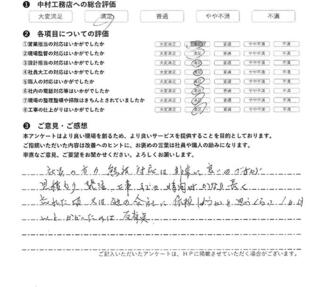 ❶ 中村工務店への総合評価
大変満足 満足 普通 やや不満 不満
❷ 各項目についての評価
①営業担当の対応はいかがでしたか 大変満足 満足 普通 やや不満 不満
②現場監督の対応はいかがでしたか 大変満足 満足 普通 やや不満 不満
③設計担当の対応はいかがでしたか 大変満足 満足 普通 やや不満 不満
④社員大工の対応はいかがでしたか 大変満足 満足 普通 やや不満 不満
⑤職人の対応はいかがでしたか 大変満足 満足 普通 やや不満 不満
⑥社内の電話対応等はいかがでしたか 大変満足 満足 普通 やや不満 不満
⑦現場の整理整頓や掃除はきちんとされていましたか 大変満足 満足 普通 やや不満 不満
⑧工事の仕上がりはいかがでしたか 大変満足 満足 普通 やや不満 不満
❸ ご意見・ご感想
本アンケートはより良い現場を創るため、より良いサービスを提供することを目的としております。
ご指摘いただいた内容は改善へのヒントに、お褒めの言葉は社員や職人の励みになります。
率直なご意見、ご要望をお聞かせください。よろしくお願いします。
社員の方の 対応は 非常に良いのですが
見積もり 発注 工事 までの 時間が かなり長く
忘れた頃 又は 他の会社に 依頼しようかと思うくらい
以上 かかったのは 残念
ご記入いただいたアンケートは、HPに掲載させていただく場合がございます。